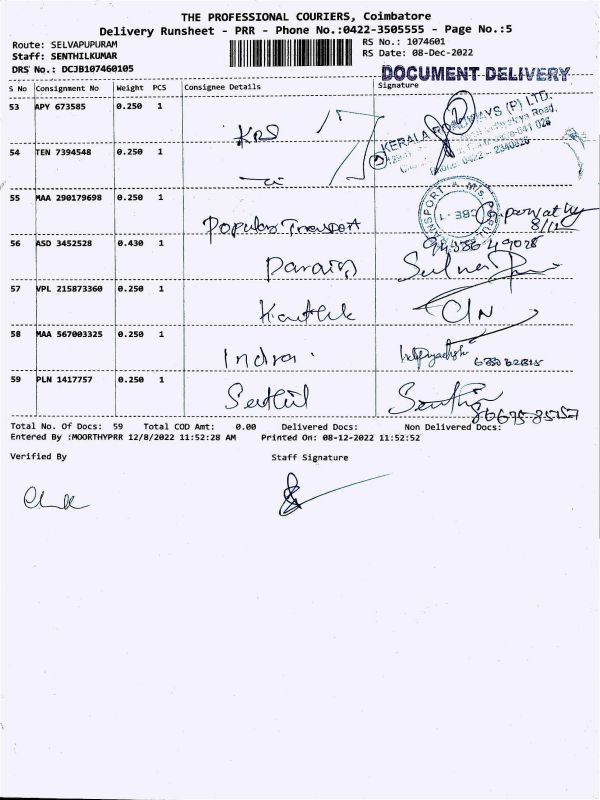 THE PROFESSIONAL COURIERS, Coimbatore
Delivery Runsheet - PRR - Phone No.:0422-3505555 - Page No.:5
Route: SELVAPUPURAM
RS No.: 1074601
Staff: SENTHILKUMAR
RS Date: 08-Dec-2022
DRS No.: DCJB107460105
DOCUMENT DELIVERY
S No Consignment No Weight PCS Consignee Details Signature
53 APY 673585 0.250 1
KERALA ROADWAYS (P) LTD.
54 TEN 7394548 0.250 1
55 MAA 290179698 0.250 1
Popular Transport
56 ASD 3452528 0.430 1
57 VPL 215873360 0.250 1
Karthik
58 MAA 567003325 0.250 1
Indra
59 PLN 1417757 0.250 1
Senthil
Total No. Of Docs: 59 Total COD Amt: 0.00 Delivered Docs: Non Delivered Docs:
Entered By :MOORTHYPRR 12/8/2022 11:52:28 AM Printed On: 08-12-2022 11:52:52
Verified By Staff Signature